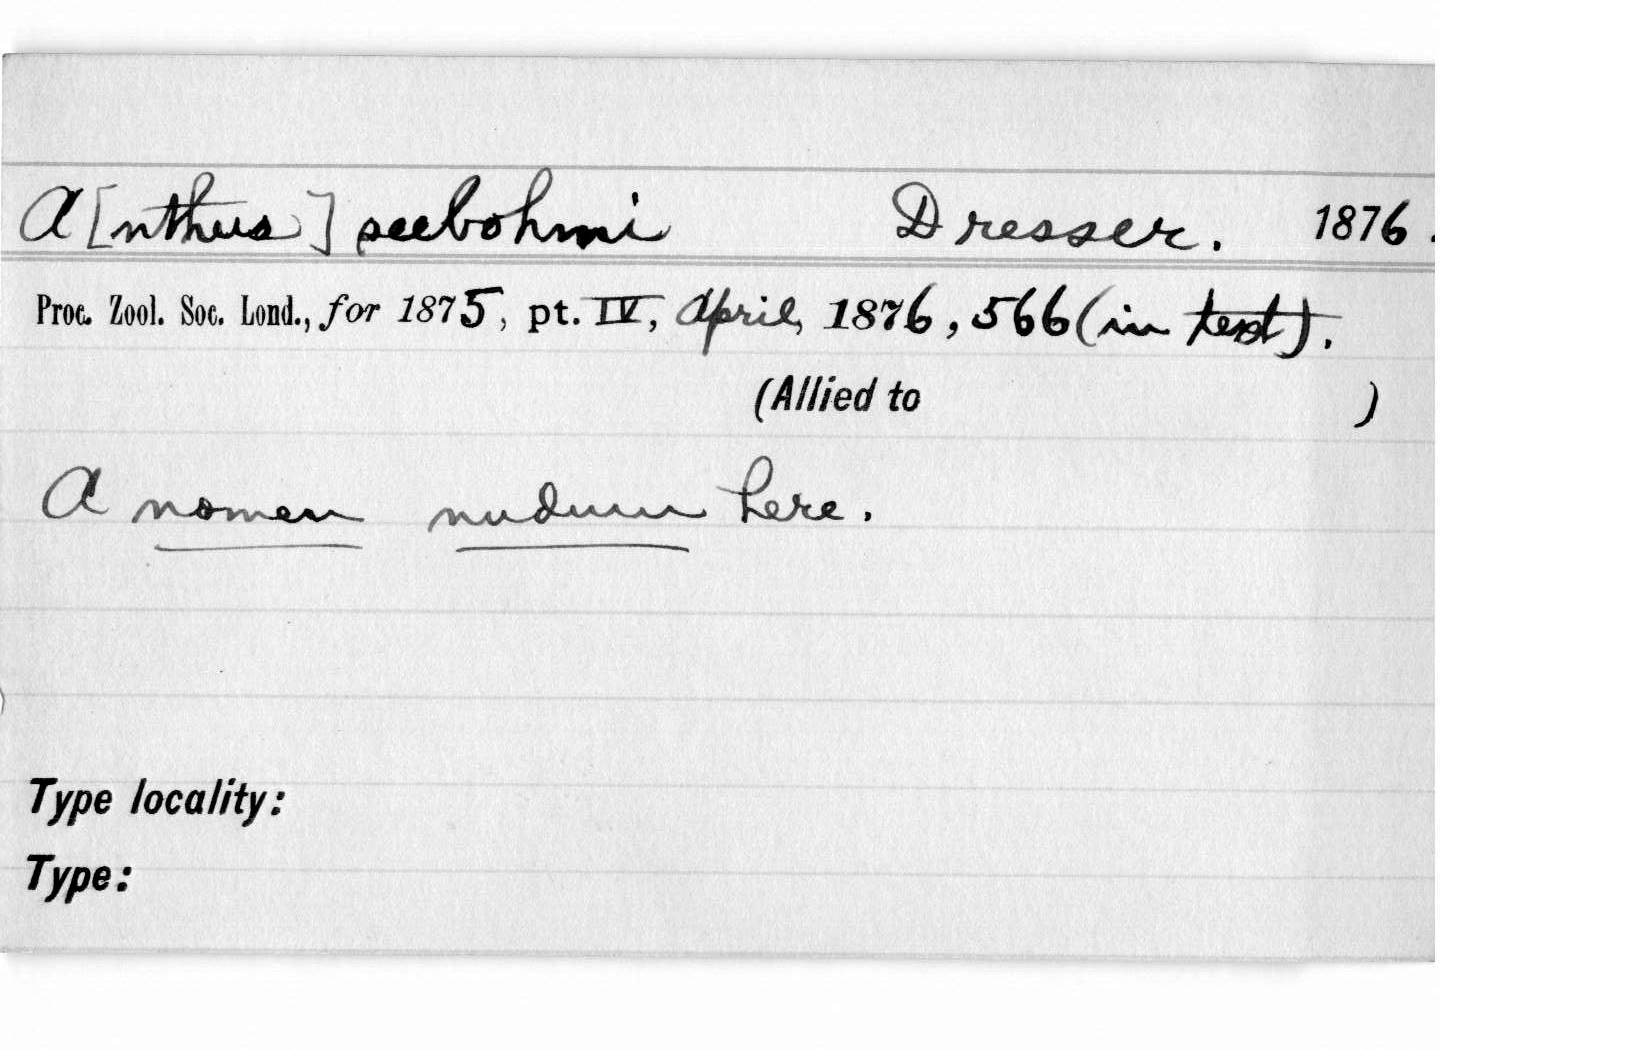 A[nthus] seebohmi Dresser. 1876.
Proc. Zool. Soc. Lond., for 1875, pt. IV, April, 1876, 566 (in text).
(Allied to )
A nomen nudum here.
Type locality:
Type: